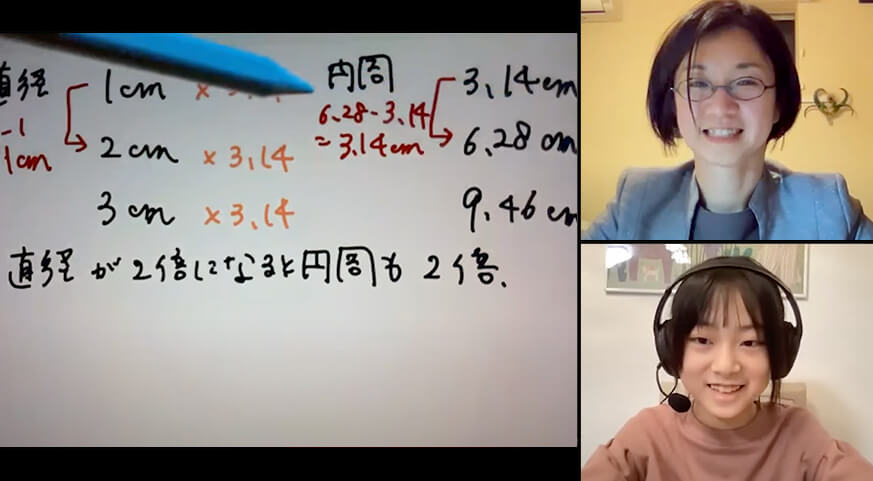 直径 1cm × 円周 3.14cm
6.28-3.14
-1
1cm 2cm ×3.14 =3.14cm 6.28cm
3cm ×3.14 9.46cm
直径が2倍になると円周も2倍.